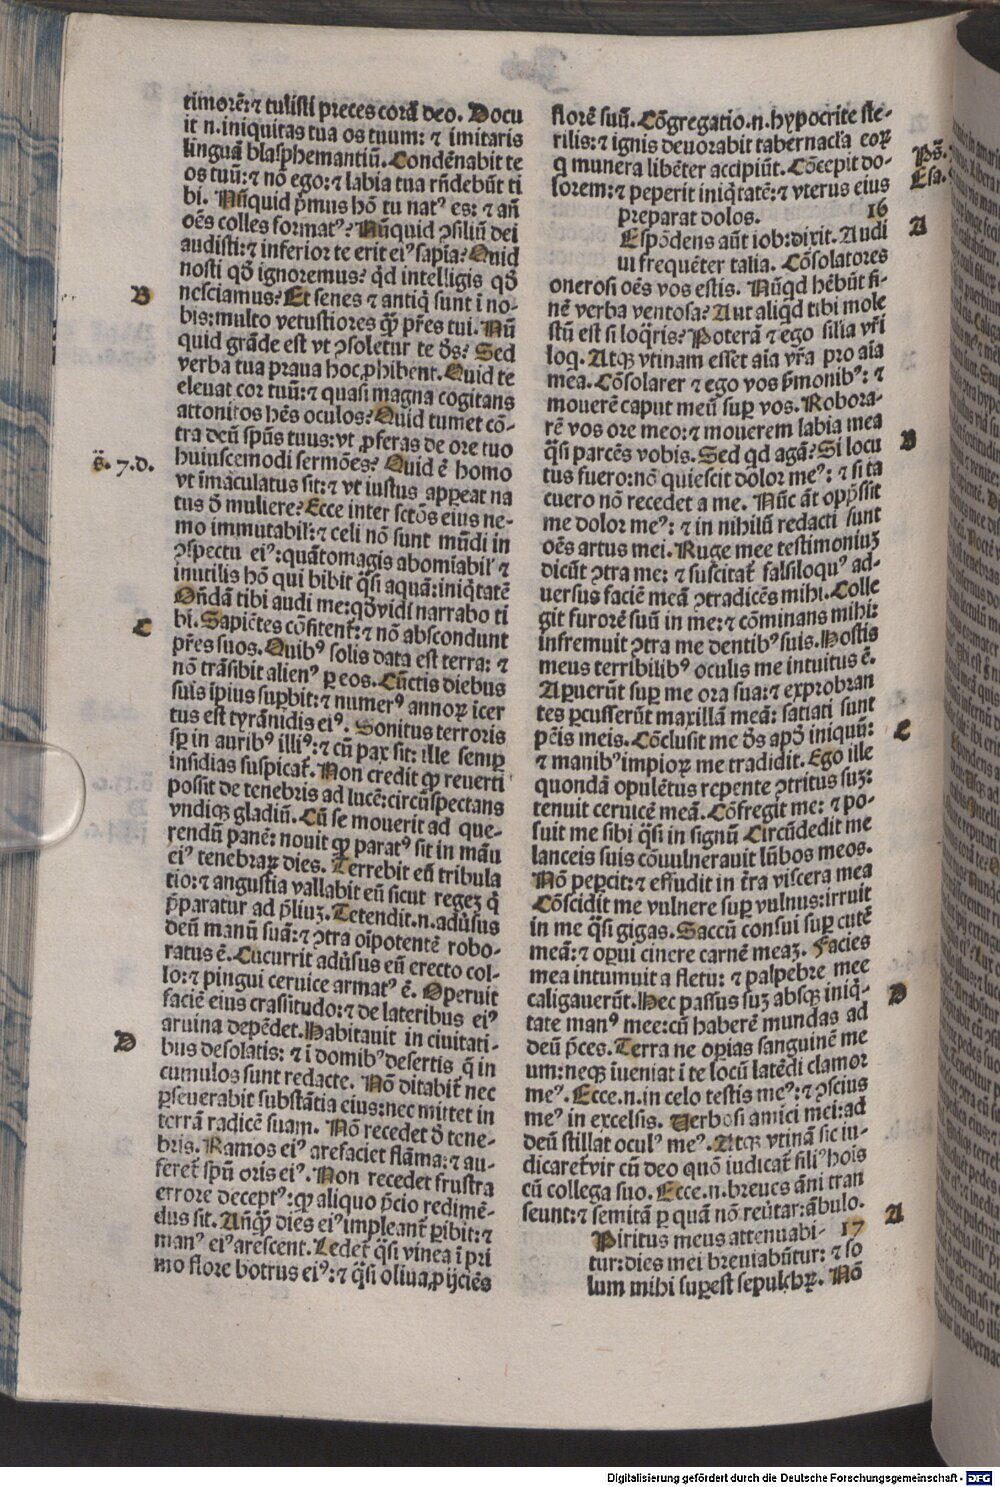 timorē: ⁊ tulisti preces corā deo. Docu
it n. iniquitas tua os tuum: ⁊ imitaris
linguā blasphemantiū. Condēnabit te
os tuū: ⁊ nō ego: ⁊ labia tua rn̄debūt ti
bi. Nūquid p̄mus hō tu natꝰ es: ⁊ an̄
oēs colles formatꝰ? Nūquid ꝯsiliū dei
audisti: ⁊ inferior te erit eiꝰ sapīa? Quid
nosti qd̄ ignoremus? qd̄ intelligis qd̄
B
nesciamus? Et senes ⁊ antiq̄ sunt ī no-
bis: multo vetustiores qꝫ̄ pr̄es tui. Nū
quid grāde est vt ꝯsoletur te d̄s? Sed
verba tua praua hoc ꝓhibent. Quid te
eleuat cor tuū: ⁊ quasi magna cogitans
attonitos hēs oculos? Quid tumet cō-
tra deū spūs tuus: vt ꝓferas de ore tuo
s̄. 7. d.
huiuscemodi sermōes? Quid ē homo
vt īmaculatus sit: ⁊ vt iustus appareat na
tus d̄ muliere? Ecce inter sctōs eius ne-
mo immutabil̓: ⁊ celi nō sunt mūdi in
ꝯspectu eiꝰ: quātomagis abomīabil̓ ⁊
inutilis hō qui bibit q̄si aquā: iniq̄tatē
Ōndā tibi audi me: qd̄ vidi narrabo ti
C
bi. Sapiētes cōfitent̄: ⁊ nō abscondunt
pr̄es suos. Quibꝰ solis data est terra: ⁊
nō trāsibit alienꝰ ꝑ eos. Cūctis diebus
suis īpius suꝑbit: ⁊ numerꝰ annoꝝ icer
tus est tyrānidis eiꝰ. Sonitus terroris
sꝑ in auribꝰ illiꝰ: ⁊ cū pax sit: ille semꝑ
insidias suspicat̄. Non credit ꝙ reuerti
possit de tenebris ad lucē: circūspectans
vndiqꝫ gladiū. Cū se mouerit ad que-
rendū panē: nouit ꝙ paratꝰ sit in māu
eiꝰ tenebraꝝ dies. Terrebit eū tribula
tio: ⁊ angustia vallabit eū sicut regeꝫ q̄
p̄paratur ad p̄liuꝫ. Tetendit. n. adūsus
deū manū suā: ⁊ ꝯtra oīpotentē robo-
ratus ē. Cucurrit adūsus eū erecto col-
lo: ⁊ pingui ceruice armatꝰ ē. Operuit
faciē eius crassitudo: ⁊ de lateribus eiꝰ
aruina depēdet. Habitauit in ciuitati-
D
bus desolatis: ⁊ ī domibꝰ desertis q̄ in
cumulos sunt redacte. Nō ditabit̄ nec
ꝑseuerabit substātia eius: nec mittet in
terrā radicē suam. Nō recedet d̄ tene-
bris. Ramos eiꝰ arefaciet flāma: ⁊ au-
feret̄ spū oris eiꝰ. Non recedet frustra
errore deceptꝰ: ꝙ aliquo p̄cio redimē-
dus sit. Anq̄ꝫ dies eiꝰ impleant̄ ꝑibit: ⁊
manꝰ eiꝰ arescent. Ledet̄ q̄si vinea ī pri
mo flore botrus eiꝰ: ⁊ q̄si oliua ꝓijciēs
florē suū. Cōgregatio. n. hypocrite ste-
rilis: ⁊ ignis deuorabit tabernacl̓a eoꝝ
q̄ munera libēter accipiūt. Cōcepit do-
Ps̄.
lorem: ⁊ peperit iniq̄tatē: ⁊ vterus eius
Esa.
preparat dolos. 16
Espōdens aūt iob: dixit. Audi
A
ui frequēter talia. Cōsolatores
onerosi oēs vos estis. Nūqd hēbūt fi-
nē verba ventosa? Aut aliqd tibi mole
stū est si loq̄ris? Poterā ⁊ ego silia vr̄i
loq. Atqꝫ vtinam esset aīa vr̄a pro aīa
mea. Cōsolarer ⁊ ego vos s̄monibꝰ: ⁊
mouerē caput meū suꝑ vos. Robora-
rē vos ore meo: ⁊ mouerem labia mea
q̄si parcēs vobis. Sed qd agā? Si locu
B
tus fuero: nō quiescit dolor meꝰ: ⁊ si ta
cuero nō recedet a me. Nūc āt opp̄ssit
me dolor meꝰ: ⁊ in nihilū redacti sunt
oēs artus mei. Ruge mee testimoniuꝫ
dicūt ꝯtra me: ⁊ suscitat̄ falsiloquꝰ ad-
uersus faciē meā ꝯtradicēs mihi. Colle
git furorē suū in me: ⁊ cōminans mihi:
infremuit ꝯtra me dentibꝰ suis. Hostis
meus terribilibꝰ oculis me intuitus ē.
Aꝑuerūt suꝑ me ora sua: ⁊ exprobran
tes ꝑcusserūt maxillā meā: satiati sunt
pēis meis. Cōclusit me d̄s apd̄ iniquū:
C
⁊ manibꝰ impioꝝ me tradidit. Ego ille
quondā opulētus repente ꝯtritus suꝫ:
tenuit ceruicē meā. Cōfregit me: ⁊ po-
suit me sibi q̄si in signū Circūdedit me
lanceis suis cōuulnerauit lūbos meos.
Nō peꝑcit: ⁊ effudit in t̄ra viscera mea
Cōscidit me vulnere suꝑ vulnus: irruit
in me q̄si gigas. Saccū consui suꝑ cutē
meā: ⁊ oꝑui cinere carnē meaꝫ. Facies
mea intumuit a fletu: ⁊ palpebre mee
caligauerūt. Hec passus suꝫ absqꝫ iniq̄-
D
tate manꝰ mee: cū haberē mundas ad
deū p̄ces. Terra ne oꝑias sanguinē me
um: neqꝫ īueniat ī te locū latēdi clamor
meꝰ. Ecce. n. in celo testis meꝰ: ⁊ ꝯscius
meꝰ in excelsis. Verbosi amici mei: ad
deū stillat oculꝰ meꝰ. Atqꝫ vtinā sic iu-
dicaret̄ vir cū deo quō iudicat̄ filiꝰ hoīs
cū collega suo. Ecce. n. breues āni tran
seunt: ⁊ semitā ꝑ quā nō reūtar: ābulo.
A
Piritus meus attenuabi- 17
tur: dies mei breuiabūtur: ⁊ so
lum mihi suꝑest sepulchꝝ. Nō
Digitalisierung gefördert durch die Deutsche Forschungsgemeinschaft - DFG